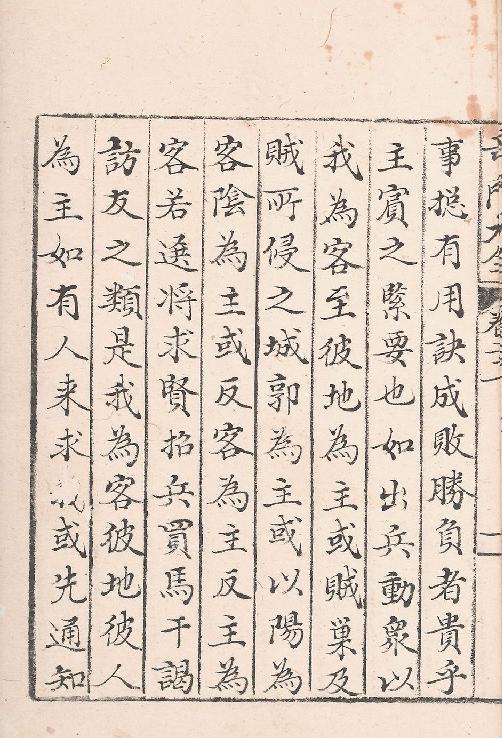 事揔有用訣成敗勝負者貴乎
主賓之緊要也如出兵動衆以
我為客至彼地為主或賊巢及
賊所侵之城郭為主或以陽為
客陰為主或反客為主反主為
客若選将求賢招兵買馬干謁
訪友之類是我為客彼地彼人
為主如有人来求我或先通知